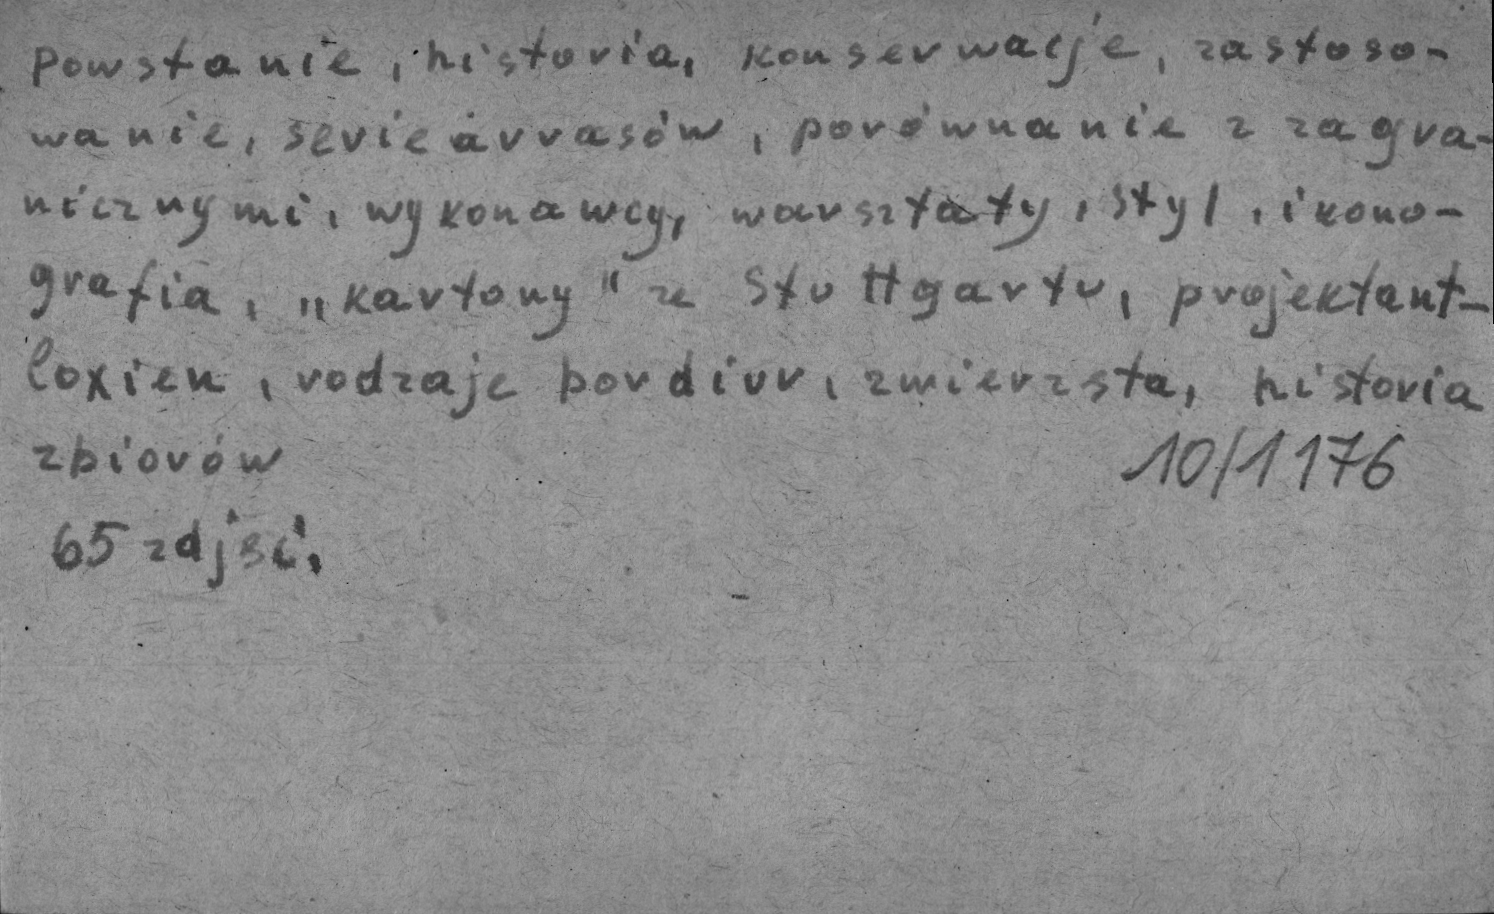 powstanie, historia, konserwacje, zastoso-
wanie, serie arrasów, porównanie z zagra-
nicznymi, wykonawcy, warsztaty, styl, ikono-
grafia, „kartony" ze Stuttgartu, projektant-
Coxien, rodzaje bordiur, zwierzęta, historia
zbiorów
10/1176
65 zdjęć.